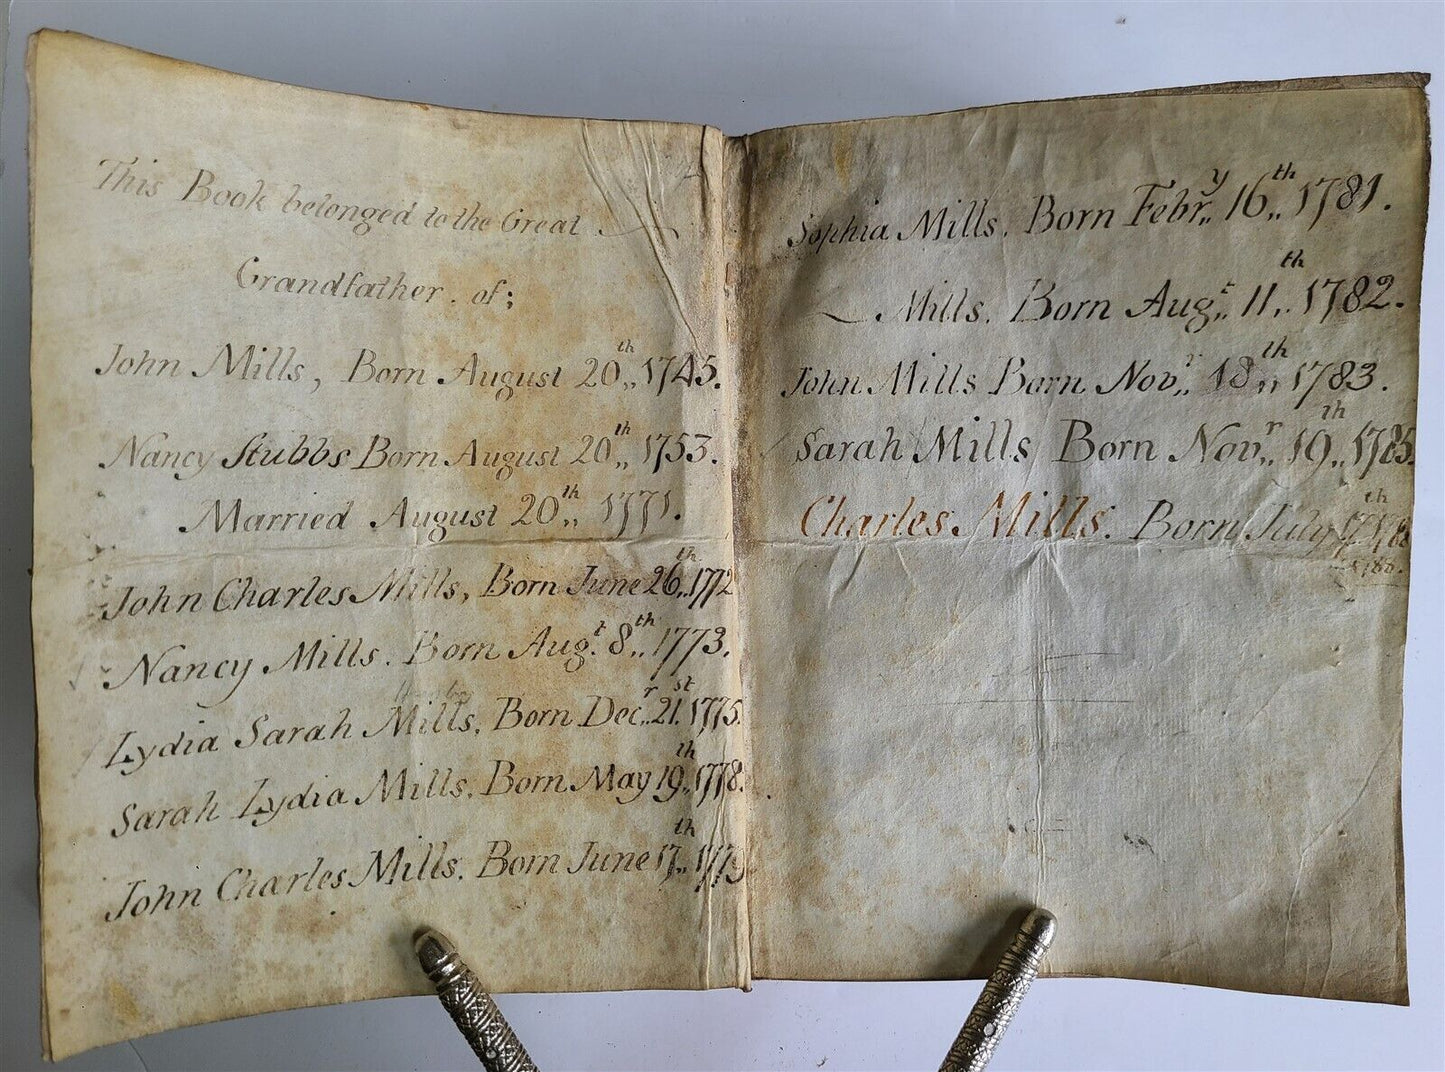 This Book belonged to the Great
Grandfather. of;
John Mills, Born August 20th,, 1745.
Nancy Stubbs Born August 20th,, 1753.
Married August 20th,, 1771.
John Charles Mills, Born June 26th,, 1772
Nancy Mills. Born Augt. 8th,, 1773.
Lydia Sarah Mills. Born Decr,, 21st. 1775.
Sarah Lydia Mills. Born May 19th,, 1778.
John Charles Mills. Born June 17th,, 1779
Sophia Mills. Born Febry,, 16th,, 1781.
Mills. Born Augt,, 11th,, 1782.
John Mills Born Novr,, 18th,, 1783.
Sarah Mills Born Novr,, 19th,, 1785.
Charles Mills. Born July